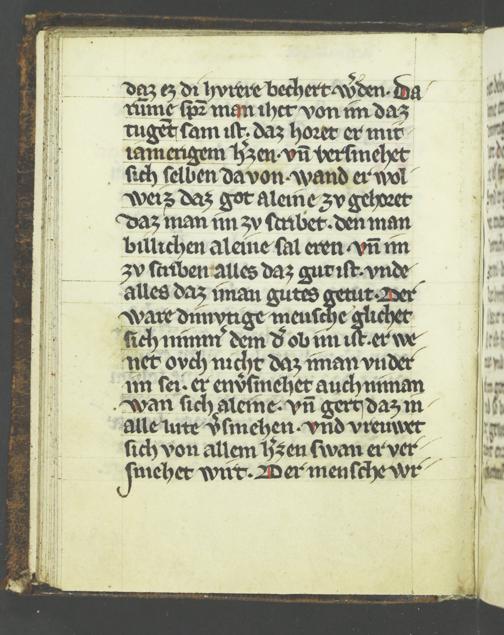 daz ez di hvrere bechert w̉den. Da
rūme spr̄ man iht von im daz
tugēt sam ist. daz horet er mit
iamerigem h̉zen. vn̄ versmehet
sich selben da von. wand er wol
weiz daz got aleine zv gehoret
daz man im zv scribet. den man
billichen aleine sal eren. vn̄ im
zv scriben alles daz gut ist. vnde
alles daz iman gutes getut. Der
ware dimvtige mensche glichet
sich nimm̉ dem d̉ ob im ist. er we
net ovch nicht daz iman vnder
im sei. er env̉smehet auch niman
wan sich aleine. vn̄ gert daz in
alle lute v̉smehen. vnd vreuwet
sich von allem h̉zen swan er ver
smehet wirt. Der mensche wi